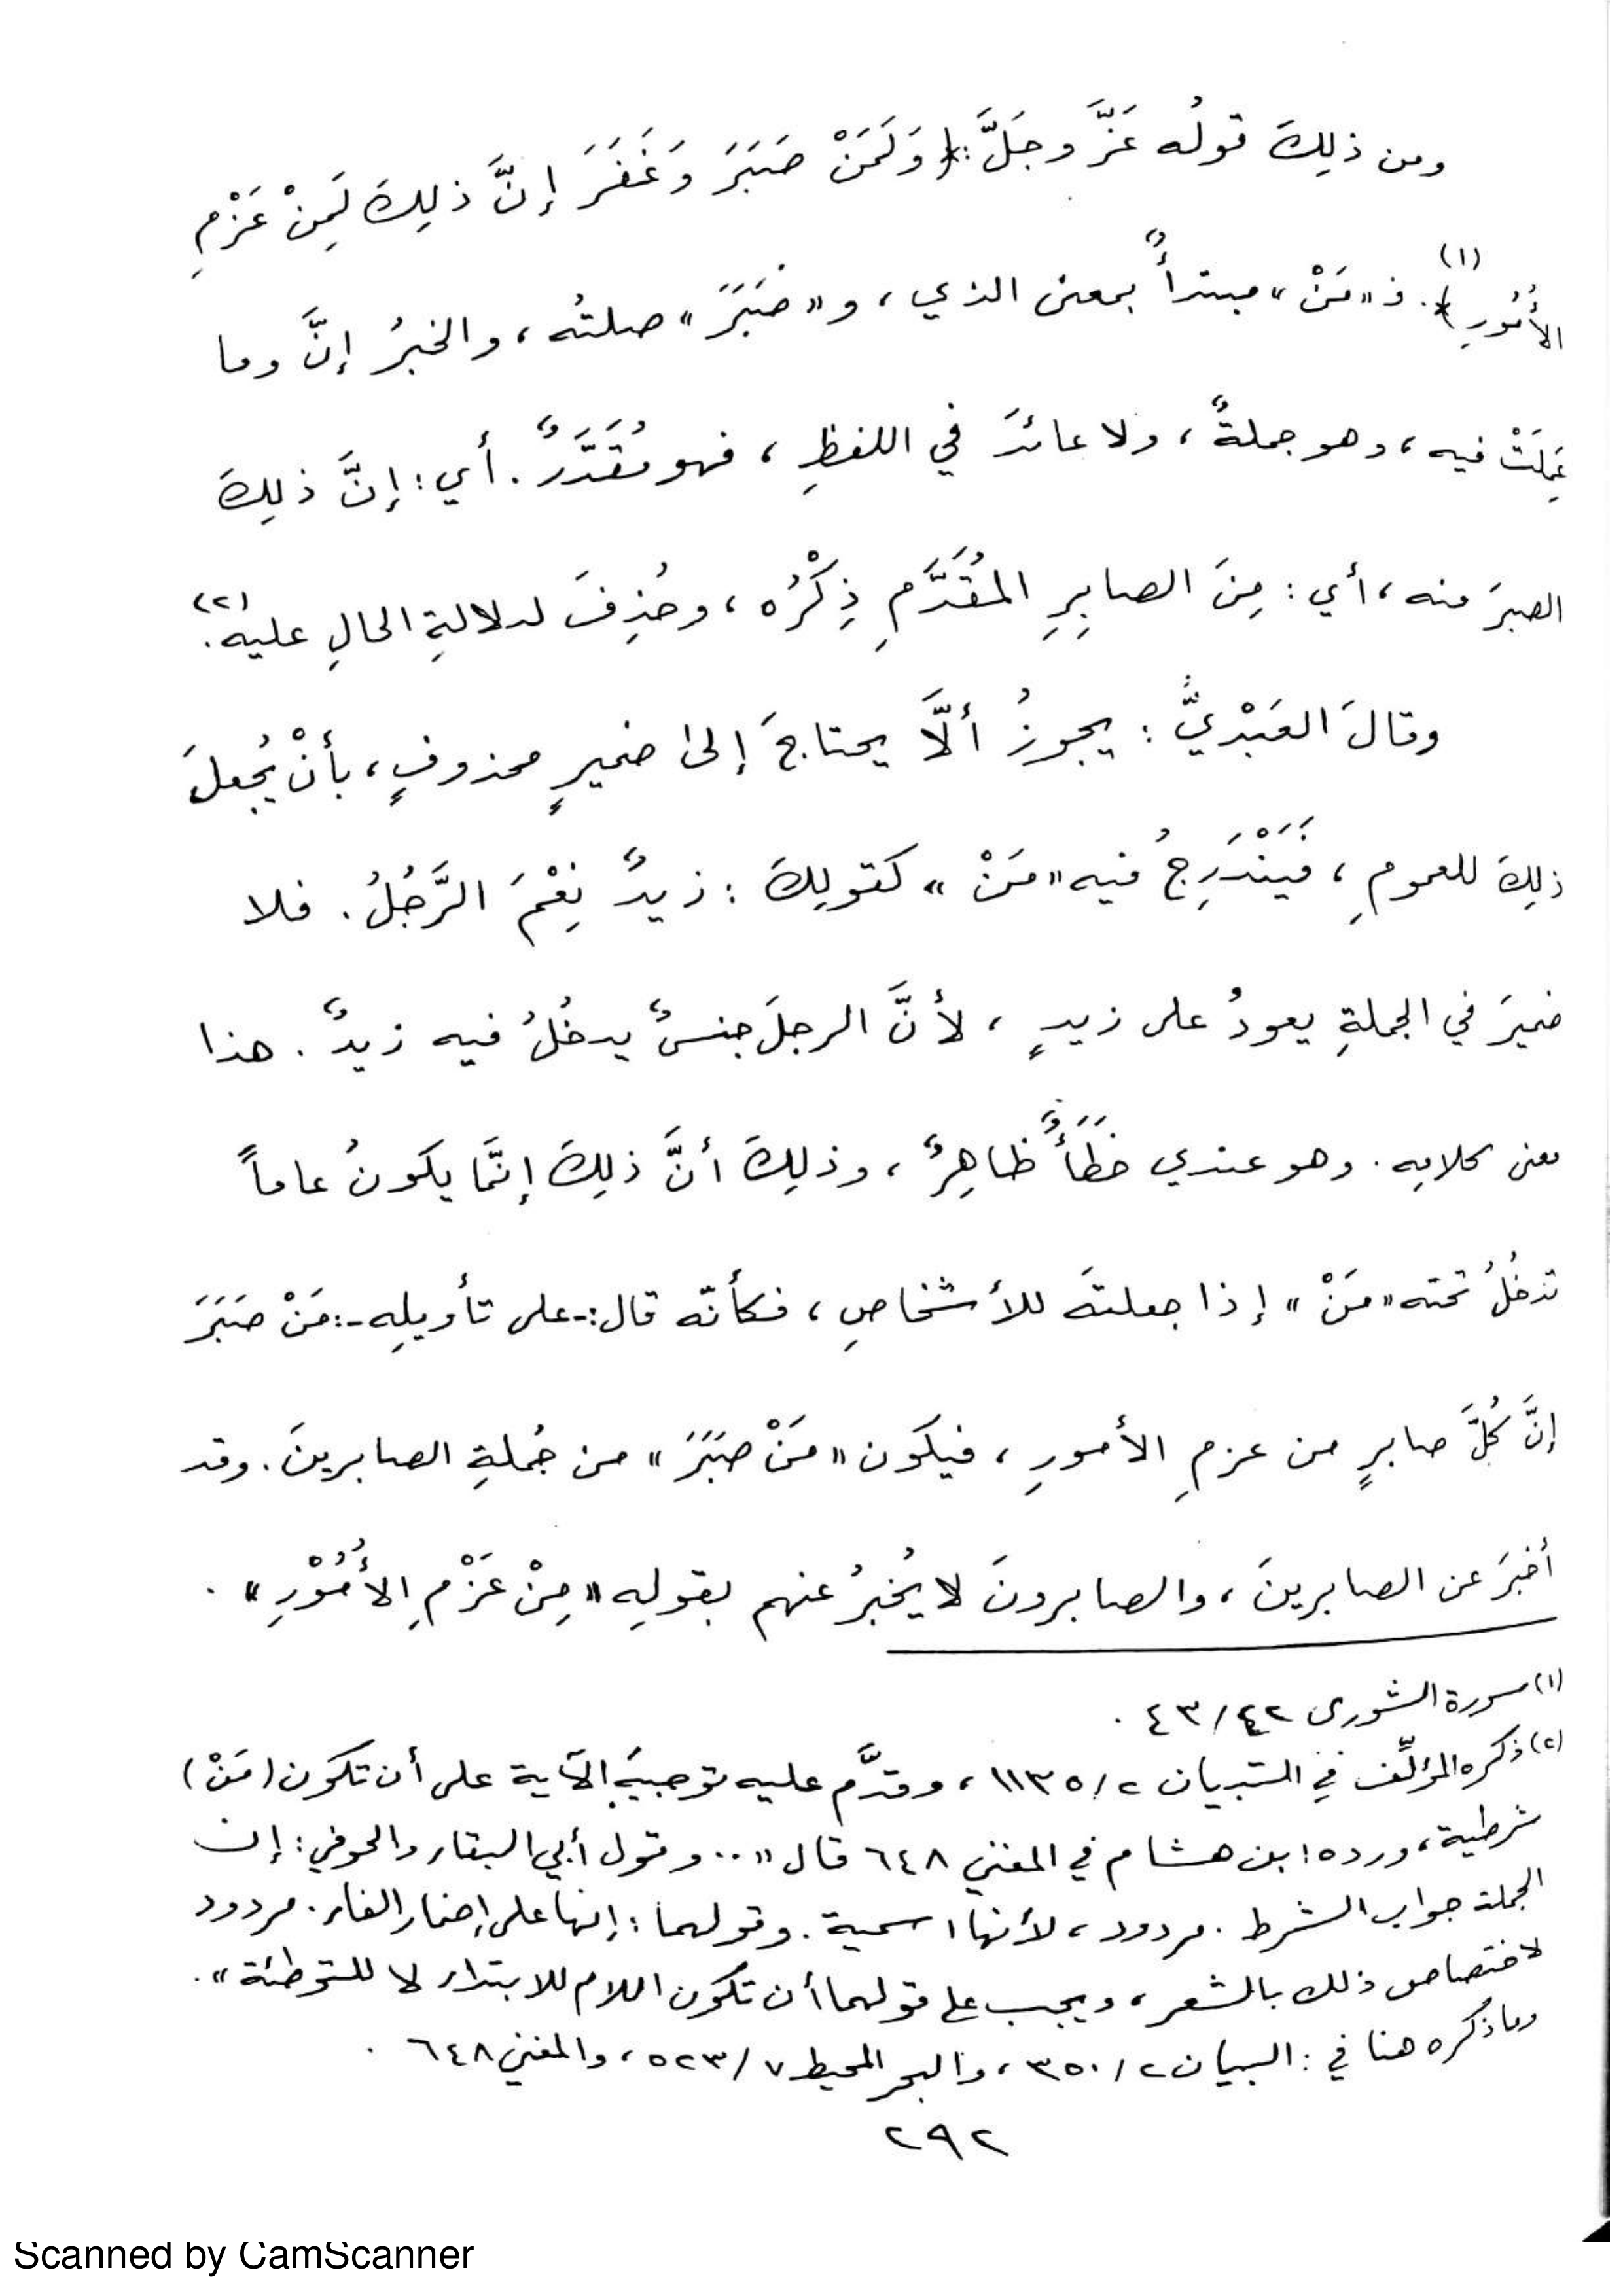 ومن ذلِكَ قولُه عَزَّ وجَلَّ: ﴿وَلَمَنْ صَبَرَ وَغَفَرَ إنَّ ذلِكَ لَمِنْ عَزْمِ
الأُمُورِ﴾(١). فـ«مَنْ» مبتدأٌ بمعنى الذي، و«صَبَرَ» صلتُه، والخبرُ إنَّ وما
عَمِلَتْ فيه، وهو جملةٌ، ولا عائدَ في اللفظِ، فهو مُقَدَّرٌ. أي: إنَّ ذلِكَ
الصبرَ منه، أي: مِنَ الصابِرِ المُقَدَّمِ ذِكْرُه، وحُذِفَ لدلالةِ الحالِ عليه(٢).
وقالَ العَبْدِيُّ: يجوزُ ألَّا يحتاجَ إلى ضميرٍ محذوفٍ، بأنْ يُجعلَ
ذلِكَ للعمومِ، فَيَنْدَرِجُ فيه «مَنْ» كقولِكَ: زيدٌ نِعْمَ الرَّجُلُ. فلا
ضميرَ في الجملةِ يعودُ على زيدٍ، لأنَّ الرجلَ جنسٌ يدخُلُ فيه زيدٌ. هذا
معنى كلامِه. وهو عندي خَطَأٌ ظاهِرٌ، وذلِكَ أنَّ ذلِكَ إنَّما يكونُ عاماً
تدخُلُ تحته «مَنْ» إذا جعلتَه للأشخاصِ، فكأنّه قال:-على تأويلِه-: مَنْ صَبَرَ
إنَّ كُلَّ صابرٍ من عزمِ الأمورِ، فيكون «مَنْ صَبَرَ» من جُملةِ الصابرينَ. وقد
أخبرَ عن الصابرينَ، والصابرونَ لا يُخبرُ عنهم بقولِه «مِنْ عَزْمِ الأُمُوْرِ».
(١) سورة الشورى ٤٣/٤٢.
(٢) ذكره المؤلِّف في التبيان ١١٣٥/٢، وقدَّم عليه توجيهَ الآية على أن تكون (مَنْ)
شرطية، ورده ابن هشام في المغني ٦٤٨ قال «.. وقول أبي البقاء والحوفي: إن
الجملة جواب الشرط. مردود، لأنها اسمية. وقولهما: إنها على إضمار الفاء. مردود
لاختصاص ذلك بالشعر، ويجب على قولهما أن تكون اللام للابتداء لا للتوطئة».
وما ذكره هنا في: البيان ٣٥٠/٢، والبحر المحيط ٥٢٣/٧، والمغني ٦٤٨.
٢٩٢
Scanned by CamScanner